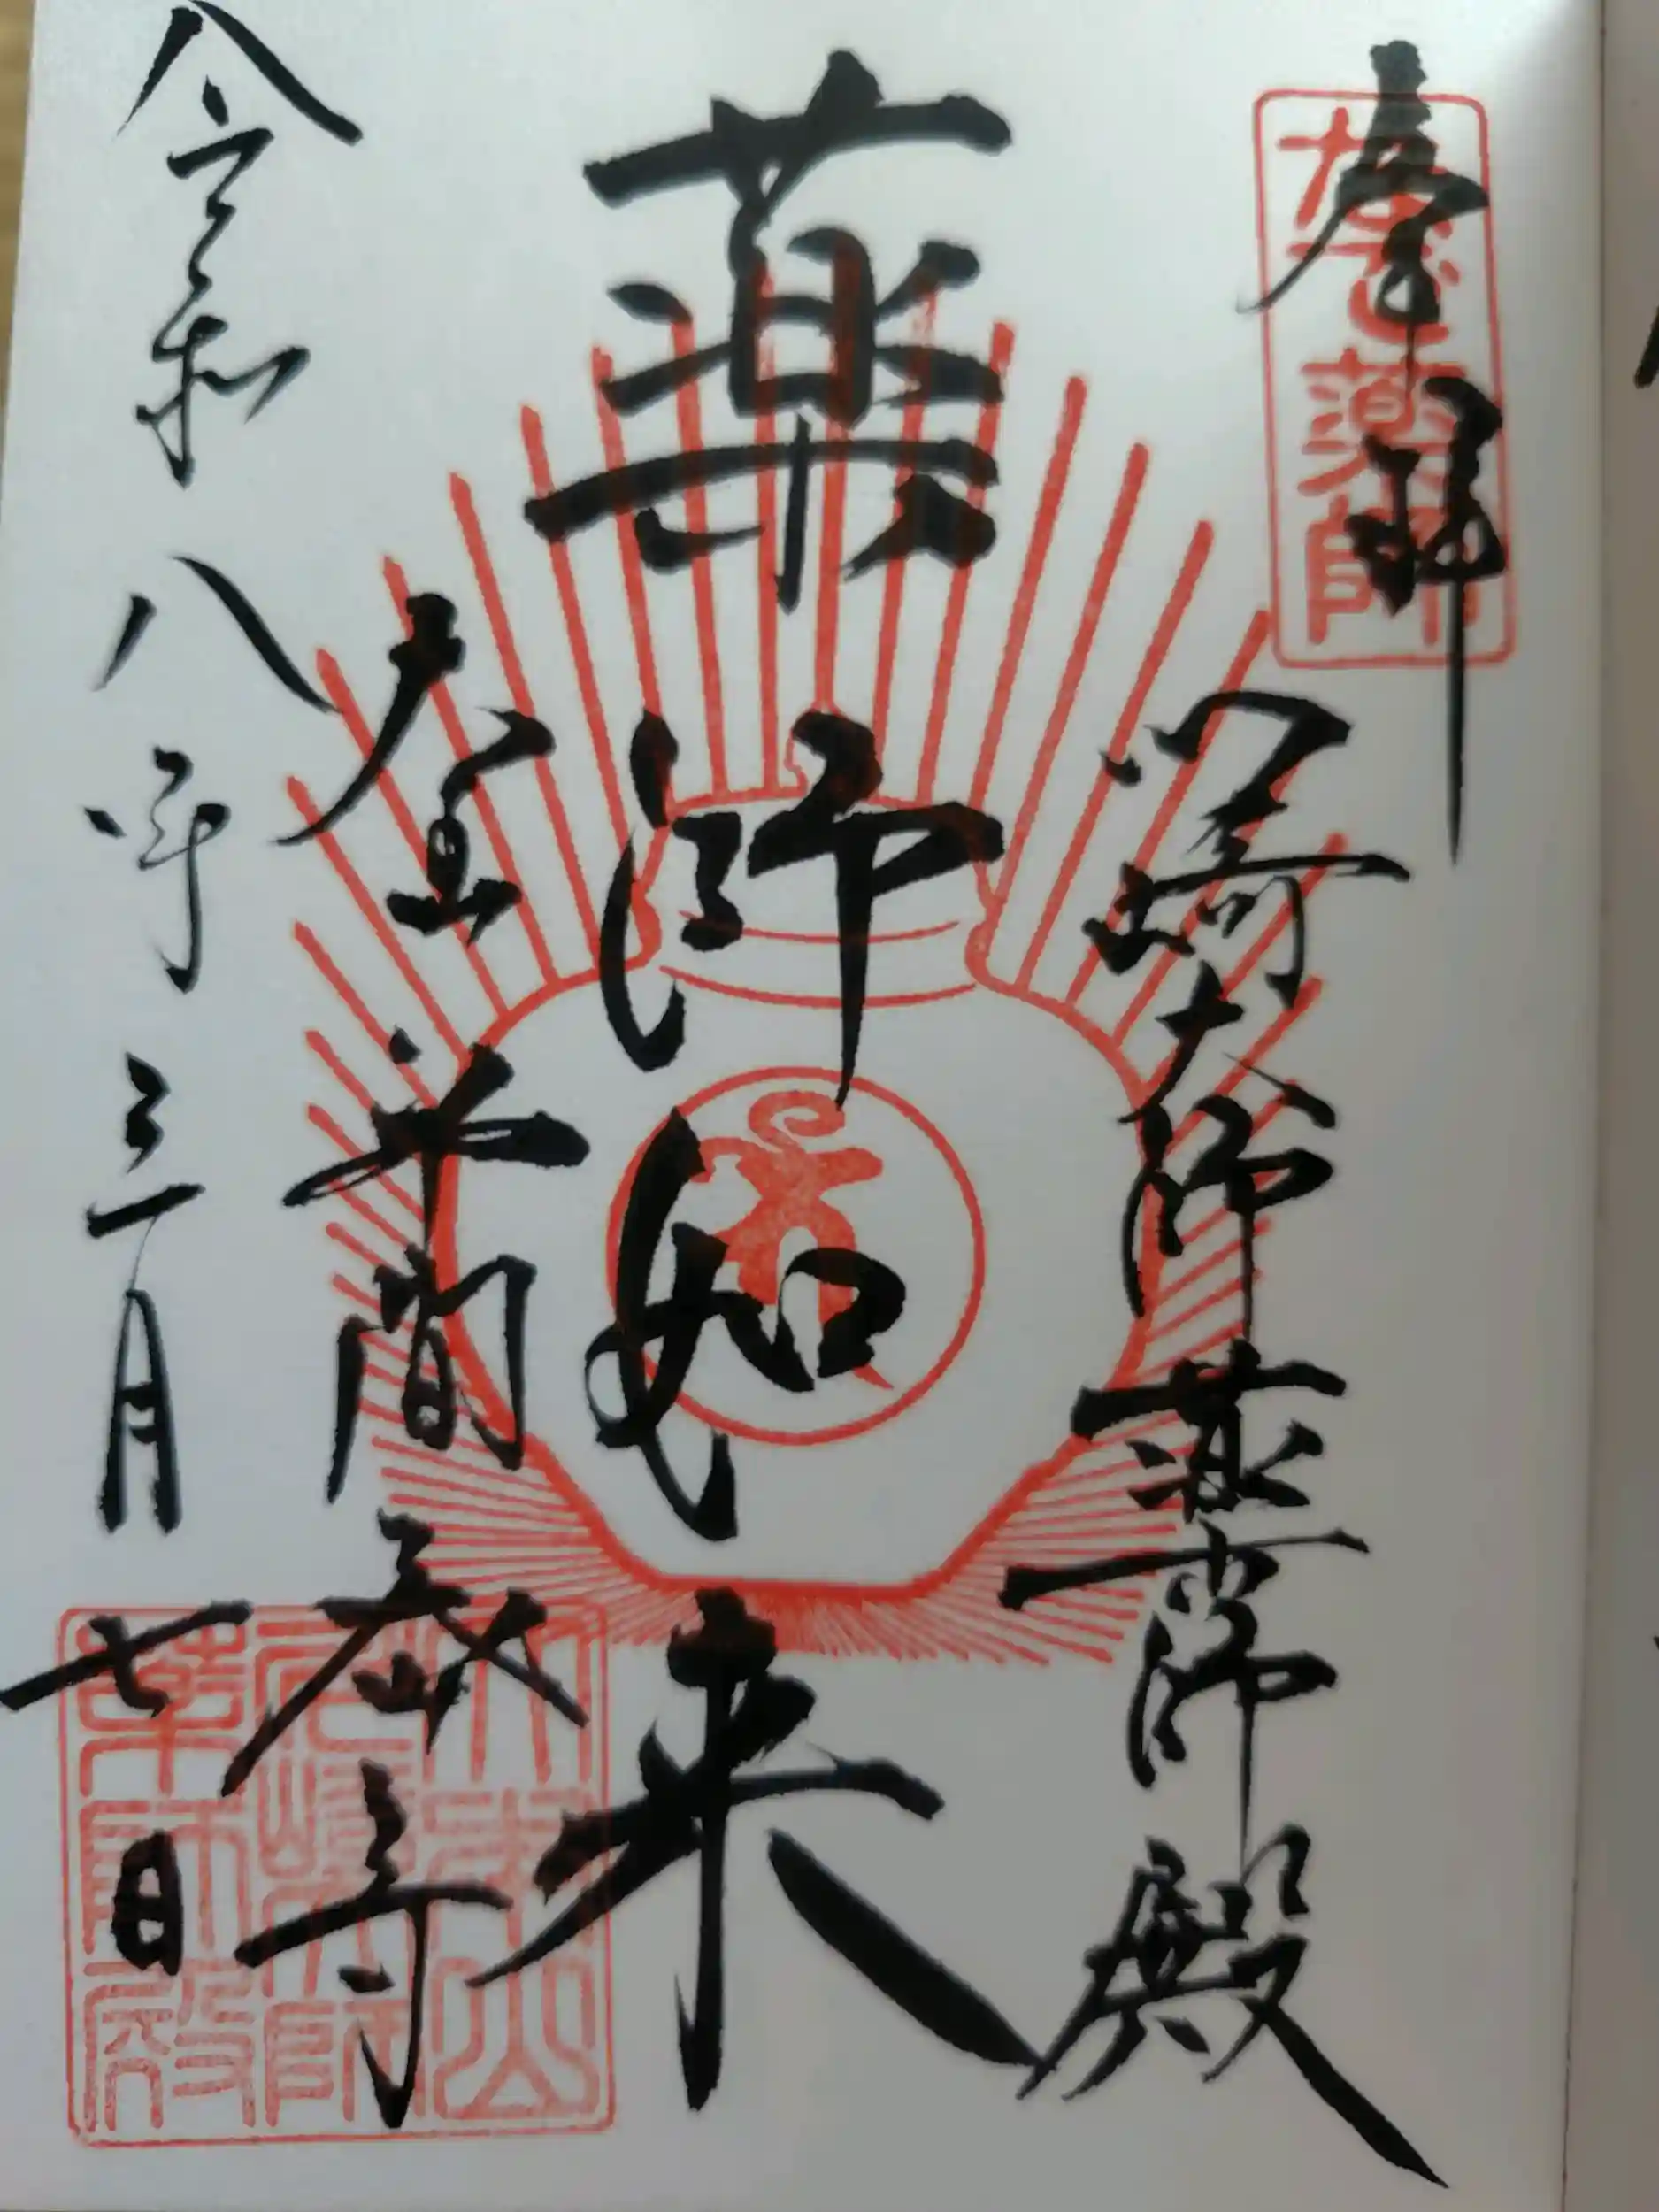 奉拝
なで薬師
川崎大師薬師殿
薬師如来
平間寺
令和八年三月七日
大本山
川崎大師
薬師殿